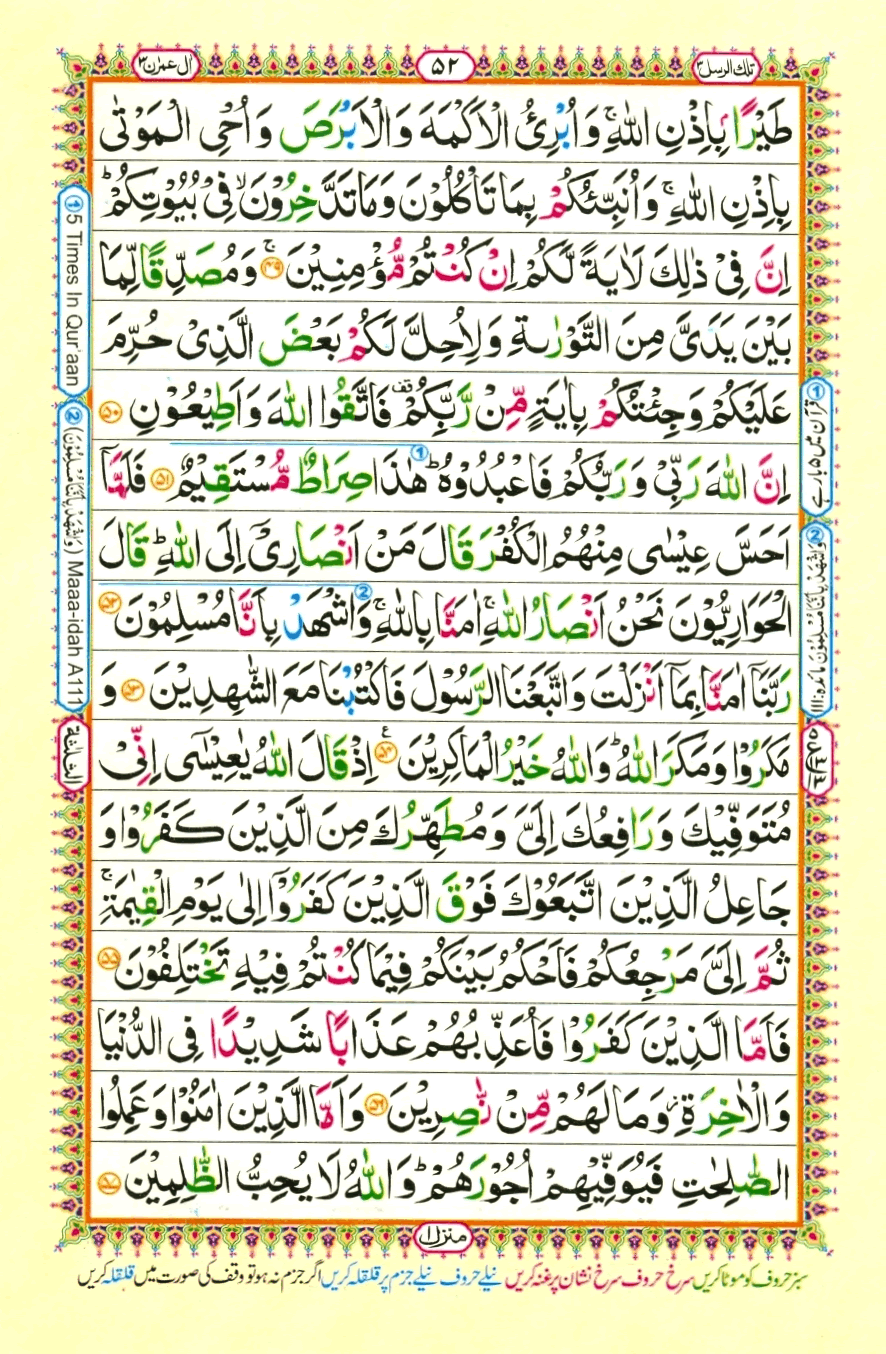 تلك الرسل ٣
٥٢
اٰل عمرٰن ٣
طَيْرًۢا بِاِذْنِ اللّٰهِ ۚ وَاُبْرِئُ الْاَكْمَهَ وَالْاَبْرَصَ وَاُحْىِ الْمَوْتٰى
بِاِذْنِ اللّٰهِ ۚ وَاُنَبِّئُكُمْ بِمَا تَاْكُلُوْنَ وَمَا تَدَّخِرُوْنَ ۙ فِىْ بُيُوْتِكُمْ ؕ
اِنَّ فِىْ ذٰلِكَ لَاٰيَةً لَّكُمْ اِنْ كُنْتُمْ مُّؤْمِنِيْنَ ۚ ﴿۴۹﴾ وَمُصَدِّقًا لِّمَا
بَيْنَ يَدَىَّ مِنَ التَّوْرٰٮةِ وَلِاُحِلَّ لَكُمْ بَعْضَ الَّذِىْ حُرِّمَ
عَلَيْكُمْ وَجِئْتُكُمْ بِاٰيَةٍ مِّنْ رَّبِّكُمْ قف فَاتَّقُوا اللّٰهَ وَاَطِيْعُوْنِ ﴿۵۰﴾
اِنَّ اللّٰهَ رَبِّىْ وَرَبُّكُمْ فَاعْبُدُوْهُ ؕ ① هٰذَا صِرَاطٌ مُّسْتَقِيْمٌ ﴿۵۱﴾ فَلَمَّاۤ
اَحَسَّ عِيْسٰى مِنْهُمُ الْكُفْرَ قَالَ مَنْ اَنْصَارِىْۤ اِلَى اللّٰهِ ؕ قَالَ
الْحَوَارِيُّوْنَ نَحْنُ اَنْصَارُ اللّٰهِ ۚ اٰمَنَّا بِاللّٰهِ ۚ ② وَاشْهَدْ بِاَنَّا مُسْلِمُوْنَ ﴿۵۲﴾
رَبَّنَاۤ اٰمَنَّا بِمَاۤ اَنْزَلْتَ وَاتَّبَعْنَا الرَّسُوْلَ فَاكْتُبْنَا مَعَ الشّٰهِدِيْنَ ﴿۵۳﴾ وَ
مَكَرُوْا وَمَكَرَ اللّٰهُ ؕ وَاللّٰهُ خَيْرُ الْمَاكِرِيْنَ ﴿۵۴﴾ ع اِذْ قَالَ اللّٰهُ يٰعِيْسٰۤى اِنِّىْ
مُتَوَفِّيْكَ وَرَافِعُكَ اِلَىَّ وَمُطَهِّرُكَ مِنَ الَّذِيْنَ كَفَرُوْا وَ
جَاعِلُ الَّذِيْنَ اتَّبَعُوْكَ فَوْقَ الَّذِيْنَ كَفَرُوْۤا اِلٰى يَوْمِ الْقِيٰمَةِ ۚ
ثُمَّ اِلَىَّ مَرْجِعُكُمْ فَاَحْكُمُ بَيْنَكُمْ فِيْمَا كُنْتُمْ فِيْهِ تَخْتَلِفُوْنَ ﴿۵۵﴾
فَاَمَّا الَّذِيْنَ كَفَرُوْا فَاُعَذِّبُهُمْ عَذَابًا شَدِيْدًا فِى الدُّنْيَا
وَالْاٰخِرَةِ ؗ وَمَا لَهُمْ مِّنْ نّٰصِرِيْنَ ﴿۵۶﴾ وَاَمَّا الَّذِيْنَ اٰمَنُوْا وَعَمِلُوا
الصّٰلِحٰتِ فَيُوَفِّيْهِمْ اُجُوْرَهُمْ ؕ وَاللّٰهُ لَا يُحِبُّ الظّٰلِمِيْنَ ﴿۵۷﴾
① قرآن میں ۵ بار ہے
② وَاشْهَدْ بِاَنَّنَا مُسْلِمُوْنَ مائدہ:۱۱۱
ع
① 5 Times In Qur'aan
② (وَاشْهَدْ بِاَنَّنَا مُسْلِمُوْنَ) Maaa-idah A111
الثلثة
منزل ١
سبز حروف کو موٹا کریں سرخ حروف سرخ نشان پر غنہ کریں نیلے حروف نیلے جزم پر قلقلہ کریں اگر جزم نہ ہو تو وقف کی صورت میں قلقلہ کریں